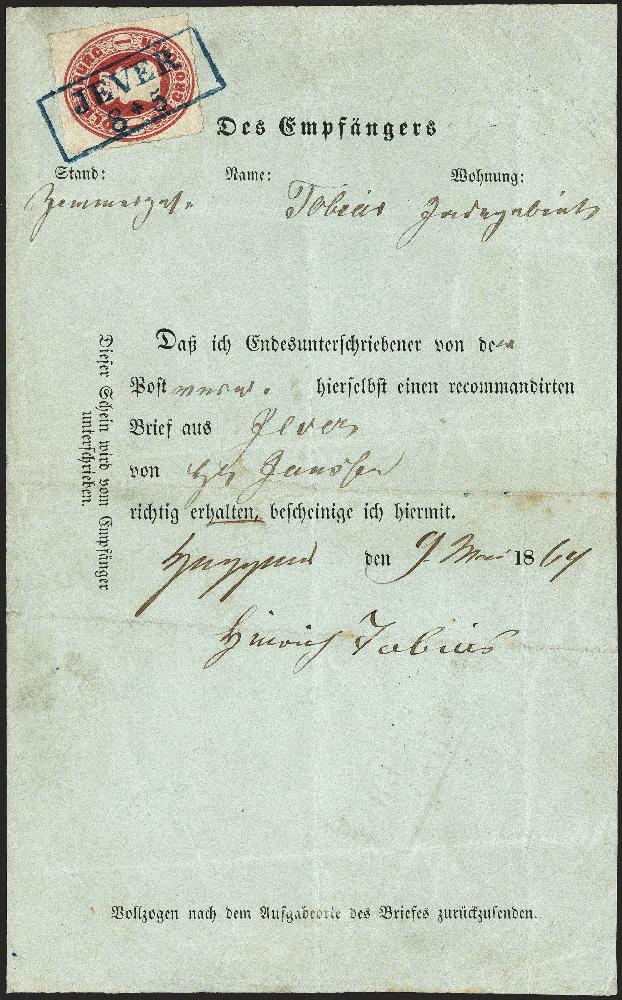 JEVER
8 * 5
Des Empfängers
Stand: Name: Wohnung:
Tobias Jadegebiet
Daß ich Endesunterschriebener von de
Post hierselbst einen recommandirten
Brief aus Jever
von Janssen
richtig erhalten, bescheinige ich hiermit.
Heppens den 9 Mai 1864
Hinrich Tobias
Dieser Schein wird vom Empfänger
unterschrieben.
Vollzogen nach dem Aufgabeorte des Briefes zurückzusenden.